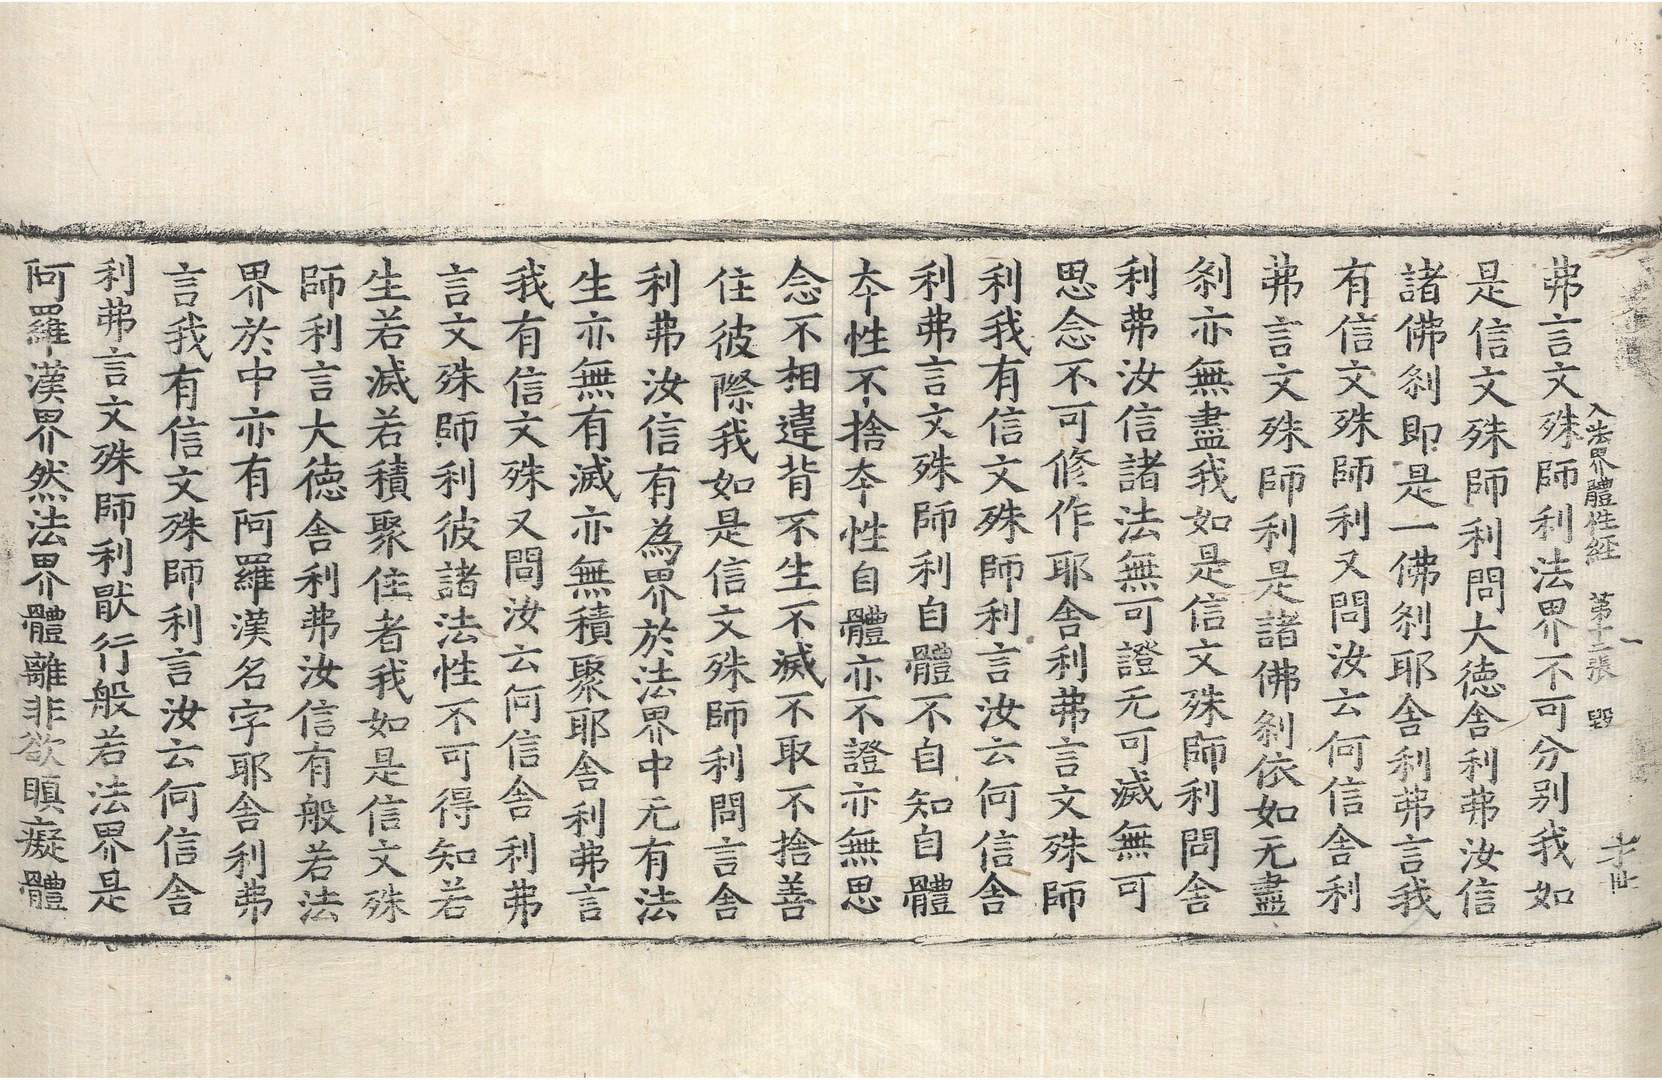 入法界體性經 第十二張 毀
弗言文殊師利法界不可分别我如
是信文殊師利問大德舍利弗汝信
諸佛刹即是一佛刹耶舍利弗言我
有信文殊師利又問汝云何信舍利
弗言文殊師利是諸佛刹依如无盡
刹亦無盡我如是信文殊師利問舍
利弗汝信諸法無可證无可滅無可
思念不可修作耶舍利弗言文殊師
利我有信文殊師利言汝云何信舍
利弗言文殊師利自體不自知自體
夲性不捨夲性自體亦不證亦無思
念不相違背不生不滅不取不捨善
住彼際我如是信文殊師利問言舍
利弗汝信有為界於法界中无有法
生亦無有滅亦無積聚耶舍利弗言
我有信文殊又問汝云何信舍利弗
言文殊師利彼諸法性不可得知若
生若滅若積聚住者我如是信文殊
師利言大德舍利弗汝信有般若法
界於中亦有阿羅漢名字耶舍利弗
言我有信文殊師利言汝云何信舍
利弗言文殊師利猒行般若法界是
阿羅漢界然法界體離非欲瞋癡體